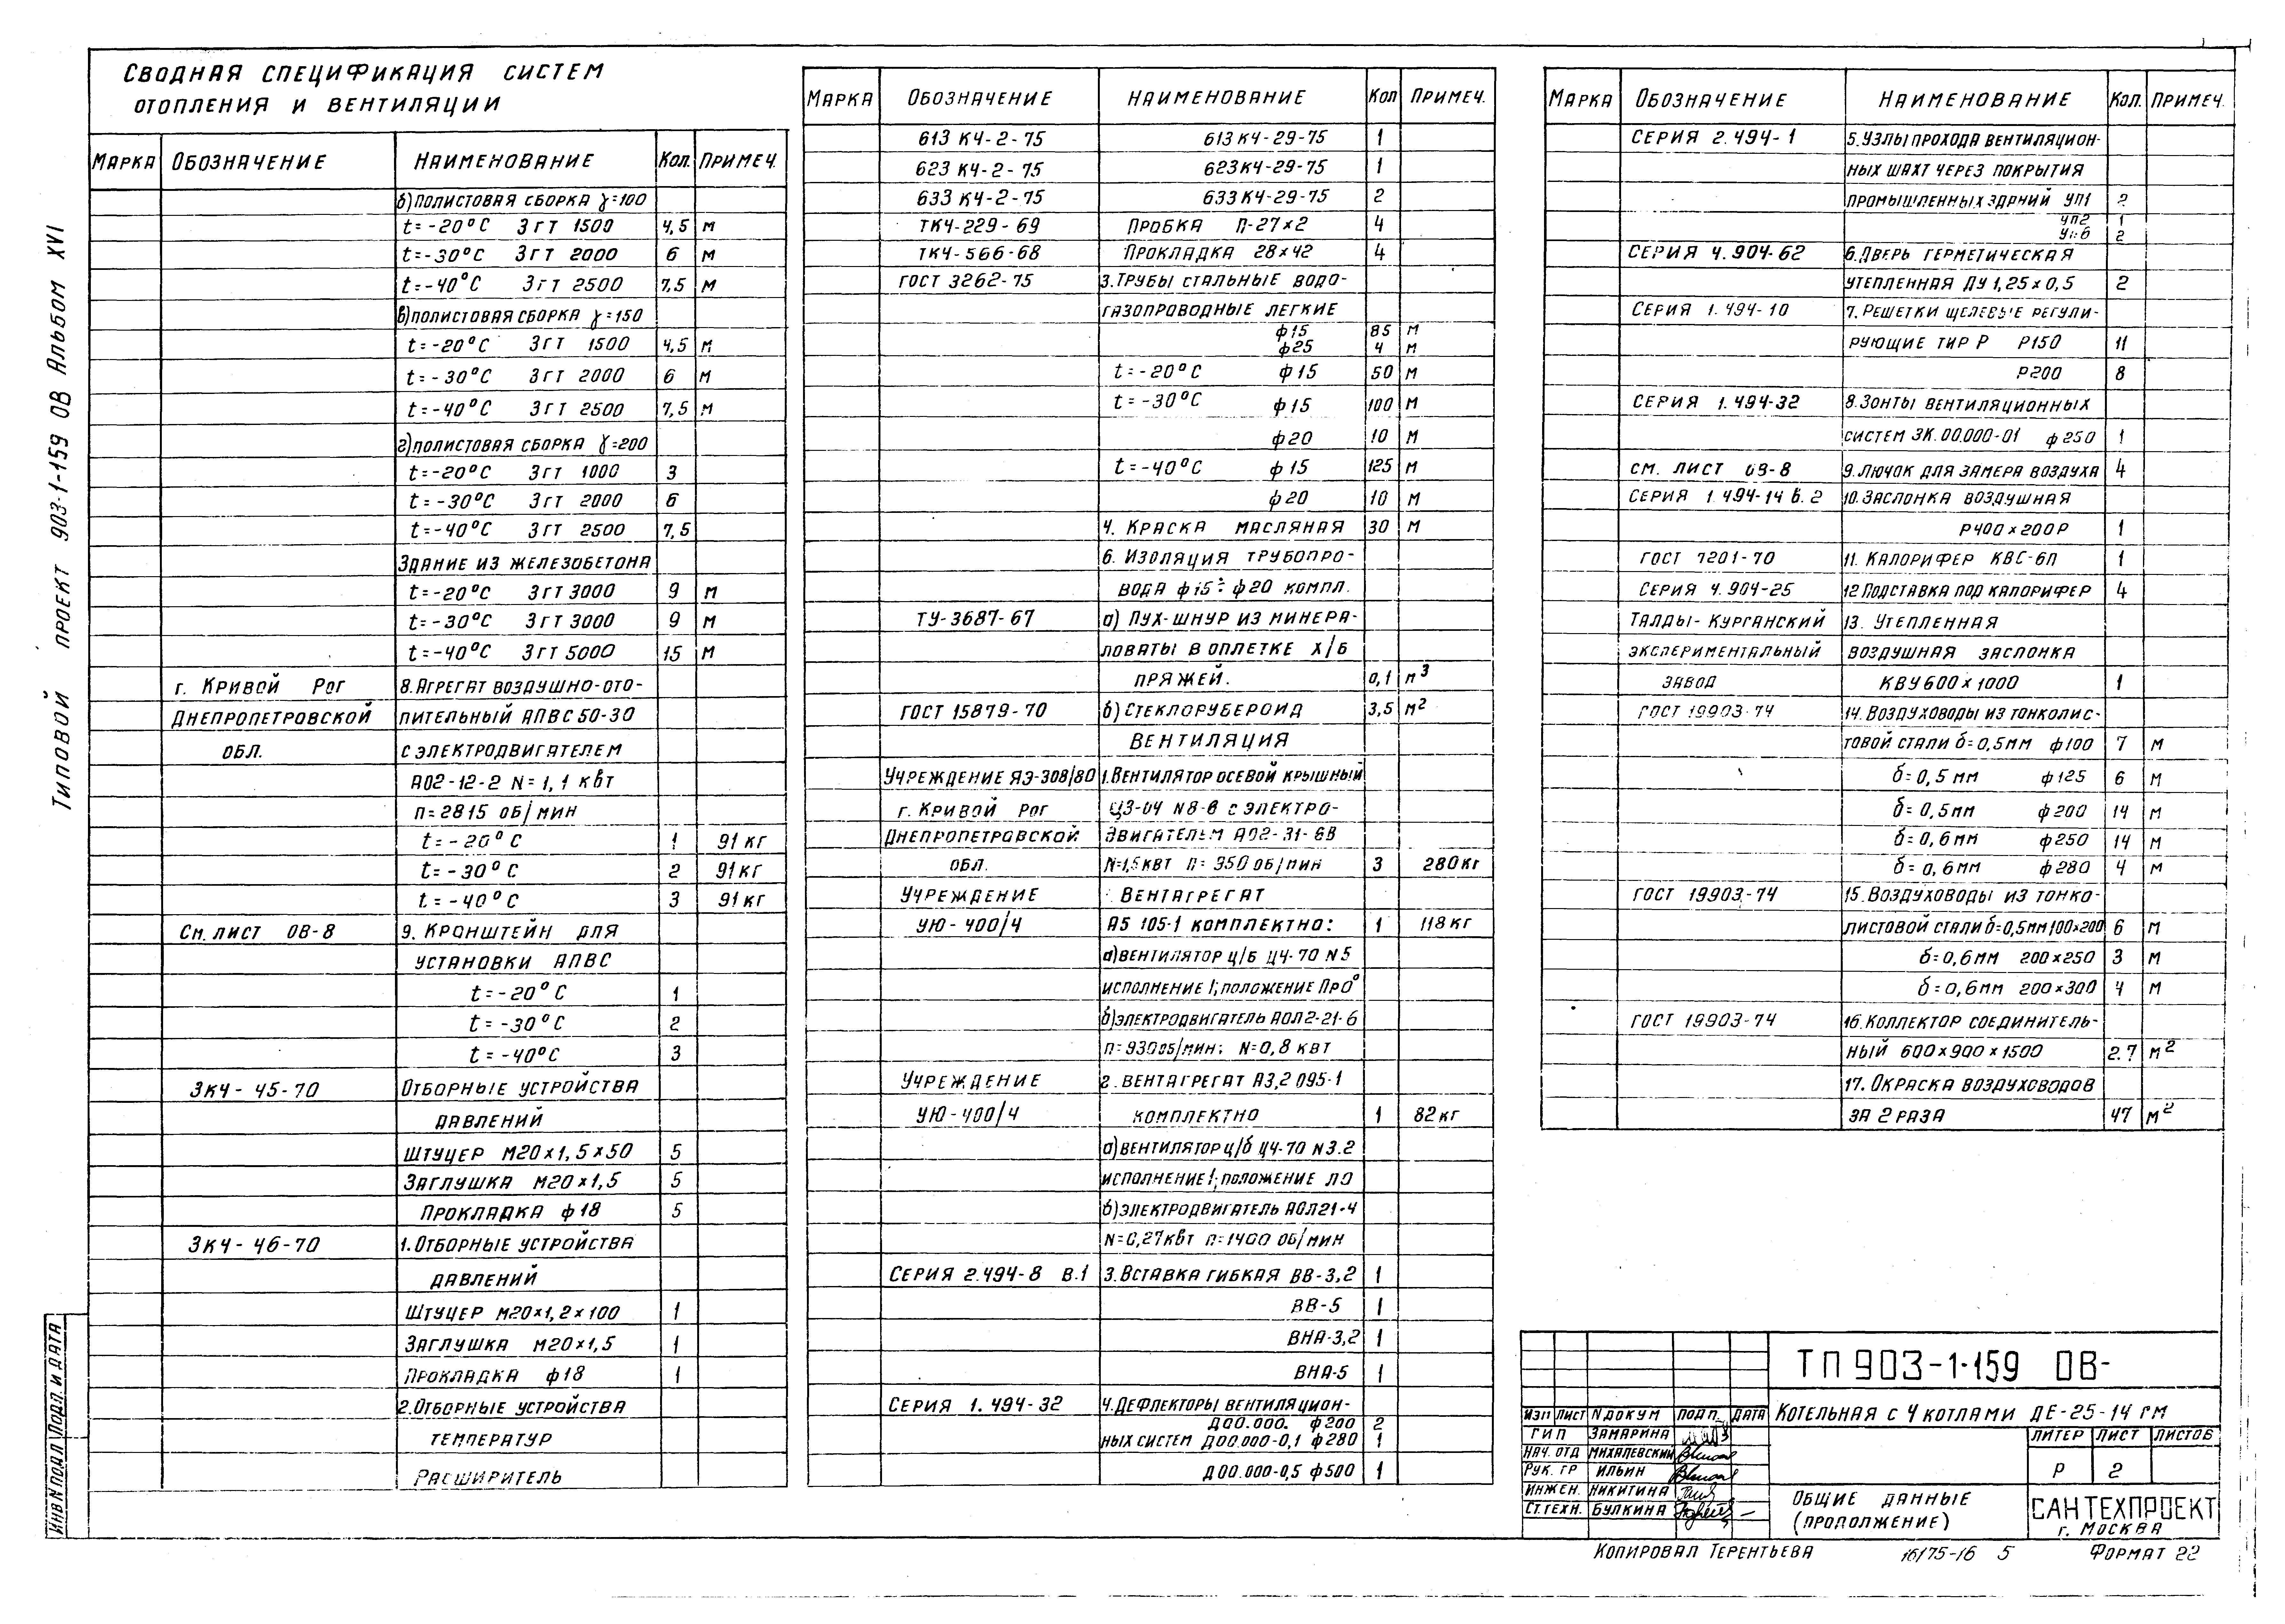 Сводная спецификация систем
отопления и вентиляции
Марка Обозначение Наименование Кол. Примеч.
б) полистовая сборка γ=100
t=-20°С 3гт 1500 4,5 м
t=-30°С 3гт 2000 6 м
t=-40°С 3гт 2500 7,5 м
в) полистовая сборка γ=150
t=-20°С 3гт 1500 4,5 м
t=-30°С 3гт 2000 6 м
t=-40°С 3гт 2500 7,5 м
г) полистовая сборка γ=200
t=-20°С 3гт 1000 3
t=-30°С 3гт 2000 6
t=-40°С 3гт 2500 7,5
Здание из железобетона
t=-20°С 3гт 3000 9 м
t=-30°С 3гт 3000 9 м
t=-40°С 3гт 5000 15 м
г. Кривой Рог 8. Агрегат воздушно-ото-
Днепропетровской пительный АПВС 50-30
обл. с электродвигателем
А02-12-2 N=1,1 квт
n=2815 об/мин
t=-20°С 1 91 кг
t=-30°С 2 91 кг
t=-40°С 3 91 кг
См. лист ОВ-8 9. Кронштейн для
установки АПВС
t=-20°С 1
t=-30°С 2
t=-40°С 3
ЗК4-45-70 Отборные устройства
давлений
Штуцер М20×1,5×50 5
Заглушка М20×1,5 5
Прокладка ф18 5
ЗК4-46-70 1. Отборные устройства
давлений
Штуцер М20×1,2×100 1
Заглушка М20×1,5 1
Прокладка ф18 1
2. Отборные устройства
температур
Расширитель
Марка Обозначение Наименование Кол Примеч.
613 К4-2-75 613 К4-29-75 1
623 К4-2-75 623 К4-29-75 1
633 К4-2-75 633 К4-29-75 2
ТК4-229-69 Пробка П-27×2 4
ТК4-566-68 Прокладка 28×42 4
ГОСТ 3262-75 3. Трубы стальные водо-
газопроводные легкие
ф15 85 м
ф25 4 м
t=-20°С ф15 50 м
t=-30°С ф15 100 м
ф20 10 м
t=-40°С ф15 125 м
ф20 10 м
4. Краска масляная 30 м
6. Изоляция трубопро-
вода ф15÷ф20 компл.
ТУ-3687-67 а) Пух-шнур из минера-
ловаты в оплетке х/б
пряжей. 0,1 м³
ГОСТ 15879-70 б) Стеклорубероид 3,5 м²
Вентиляция
Учреждение ЯЭ-308/80 1. Вентилятор осевой крышный
г. Кривой Рог Ц3-04 N8-6 с электро-
Днепропетровской двигателем А02-31-6В
обл. N=1,5 квт n=950 об/мин 3 280 кг
Учреждение Вентагрегат
УЮ-400/4 А5 105-1 комплектно: 1 118 кг
а) вентилятор ц/б Ц4-70 N5
исполнение 1; положение Пр0°
б) электродвигатель АОЛ2-21-6
n=930 об/мин; N=0,8 квт
Учреждение 2. вентагрегат А3,2 095-1
УЮ-400/4 комплектно 1 82 кг
а) вентилятор ц/б Ц4-70 N3.2
исполнение 1; положение Л0
б) электродвигатель АОЛ21-4
N=0,27квт n=1400 об/мин
Серия 2.494-8 В.1 3. Вставка гибкая ВВ-3,2 1
ВВ-5 1
ВНА-3,2 1
ВНА-5 1
Серия 1.494-32 4. Дефлекторы вентиляцион-
Д00.000. ф200 2
ных систем Д00.000-0,1 ф280 1
Д00.000-0,5 ф500 1
Марка Обозначение Наименование Кол. Примеч.
Серия 2.494-1 5. Узлы прохода вентиляцион-
ных шахт через покрытия
промышленных зданий УП1 2
УП2 1
УП6 2
Серия 4.904-62 6. Дверь герметическая
утепленная ДУ 1,25×0,5 2
Серия 1.494-10 7. Решетки щелевые регули-
рующие тип Р Р150 11
Р200 8
Серия 1.494-32 8. Зонты вентиляционных
систем ЗК.00.000-01 ф250 1
см. лист ОВ-8 9. Лючок для замера воздуха 4
Серия 1.494-14 В.2 10. Заслонка воздушная
Р400×200Р 1
ГОСТ 7201-70 11. Калорифер КВС-6П 1
Серия 4.904-25 12 Подставка под калорифер 4
Талды-Курганский 13. Утепленная
экспериментальный воздушная заслонка
завод КВУ 600×1000 1
ГОСТ 19903-74 14. Воздуховоды из тонколис-
товой стали б=0,5мм ф100 7 м
б=0,5 мм ф125 6 м
б=0,5мм ф200 14 м
б=0,6 мм ф250 14 м
б=0,6мм ф280 4 м
ГОСТ 19903-74 15. Воздуховоды из тонко-
листовой стали б=0,5мм 100×200 6 м
б=0,6мм 200×250 3 м
б=0,6мм 200×300 4 м
ГОСТ 19903-74 16. Коллектор соединитель-
ный 600×900×1500 2.7 м²
17. Окраска воздуховодов
за 2 раза 47 м²
Типовой проект 903-1-159 ОВ Альбом XVI
Инв N подл Подп. и дата
ТП 903-1-159 ОВ-
Изм Лист N докум Подп. Дата
Котельная с 4 котлами ДЕ-25-14 ГМ
ГИП Замарина
Нач. отд Михалевский
Рук. гр Ильин
Инжен. Никитина
Ст. техн. Булкина
Литер Лист Листов
Р 2
Общие данные
(прополжение)
САНТЕХПРОЕКТ
г. Москва
Копировал Терентьева 16175-16 5 Формат 22